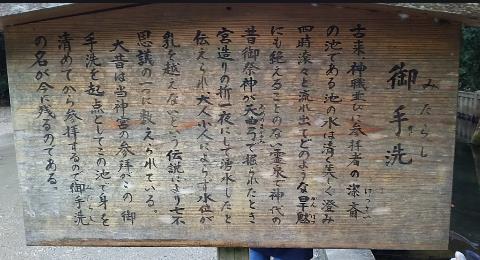 御手洗
みたらし
古来、神職並びに参拝者の潔斎
けっさい
の池である。池の水は清く美しく澄み
四時滾々と流れ出てどのような旱魃
かんばつ
にも絶えることのない霊泉で神代の
昔御祭神が天曲弓で掘られたとき
宮造りの折一夜にして湧水したと
伝えられ大人小人によらず水位が
乳を越えないという伝説により七不
思議の一に数えられている。
大昔は当神宮の参拝がこの御
手洗を起点としてこの池で身を
清めてから参拝するので御手洗
の名が今に残るのである。